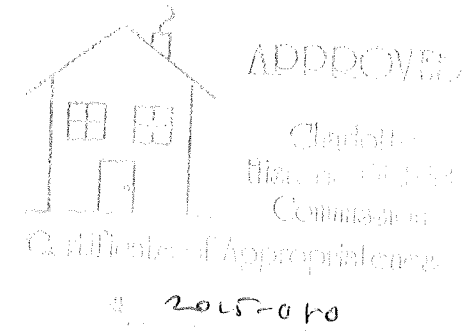 APPROVED
Charlotte
Historic District
Commission
Certificate of Appropriateness
# 2015-010